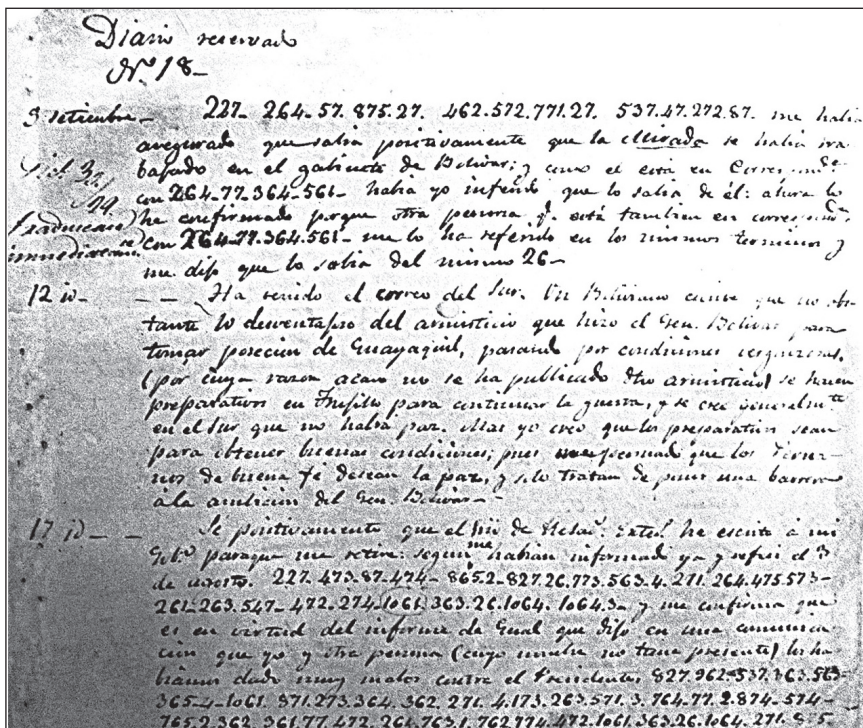 Diario reservado
Nº 18-
3 setiembre- 227- 264-57. 875.27. 462.572.771.27. 537.47.272.87. me habia
asegurado que sabia positivamente que la Mirada se habia tra
bajado en el gabinete de Bolivar; y como el está en Correspond.ª
con 264-77-364-561- habia yo inferido que lo sabia de él: ahora lo
he confirmado porque otra persona q. está tambien en correspond.ª
con 264-77.364.561- me lo ha referido en los mismos terminos y
me dijo que lo sabia del mismo 26-
12 id- - - Ha venido el correo del Sur. Un Boliviano escribe que no obs
tante lo desventajoso del armisticio que hizo el Gen. Bolivar para
tomar posecion de Guayaquil, pasando por condiciones vergonzosas,
(por cuya razon acaso no se ha publicado dho armisticio) se hacen
preparativos en Trujillo para continuar la guerra, y se cree generalm.te
en el Sur que no habrá paz. Mas yo creo que los preparativos sean
para obtener buenas condiciones; pues me persuado que los Perua-
nos de buena fé desean la paz, y solo tratan de poner una barrera
á la ambicion del Gen. Bolivar-
17 id- - Se positivamente que el Mi de Relac.s Exte.s he escrito á mi
Gob.º paraque me retire: segun me habian informado ya y referi el 3
de agosto. 227.473.87-474- 865.2-827.26.773.563.4.271.264.475.573-
261-263.547-472.274.1061.363.26.1064.1064.3- y me confirma que
es en virtud del informe de Gual que dijo en una comunica-
cion que yo y otra persona (cuyo nombre no tiene presente) le ha
biamos dado muy malos contra el Presidente. 827.962-537.363.563-
365-4-1061. 871.273.364.362.271.4.173.263.571.3.764.77.2.874-574-
765.2.362.361.77.472.261.763.1.762.774.472.1061.363.26.1064.271.875-